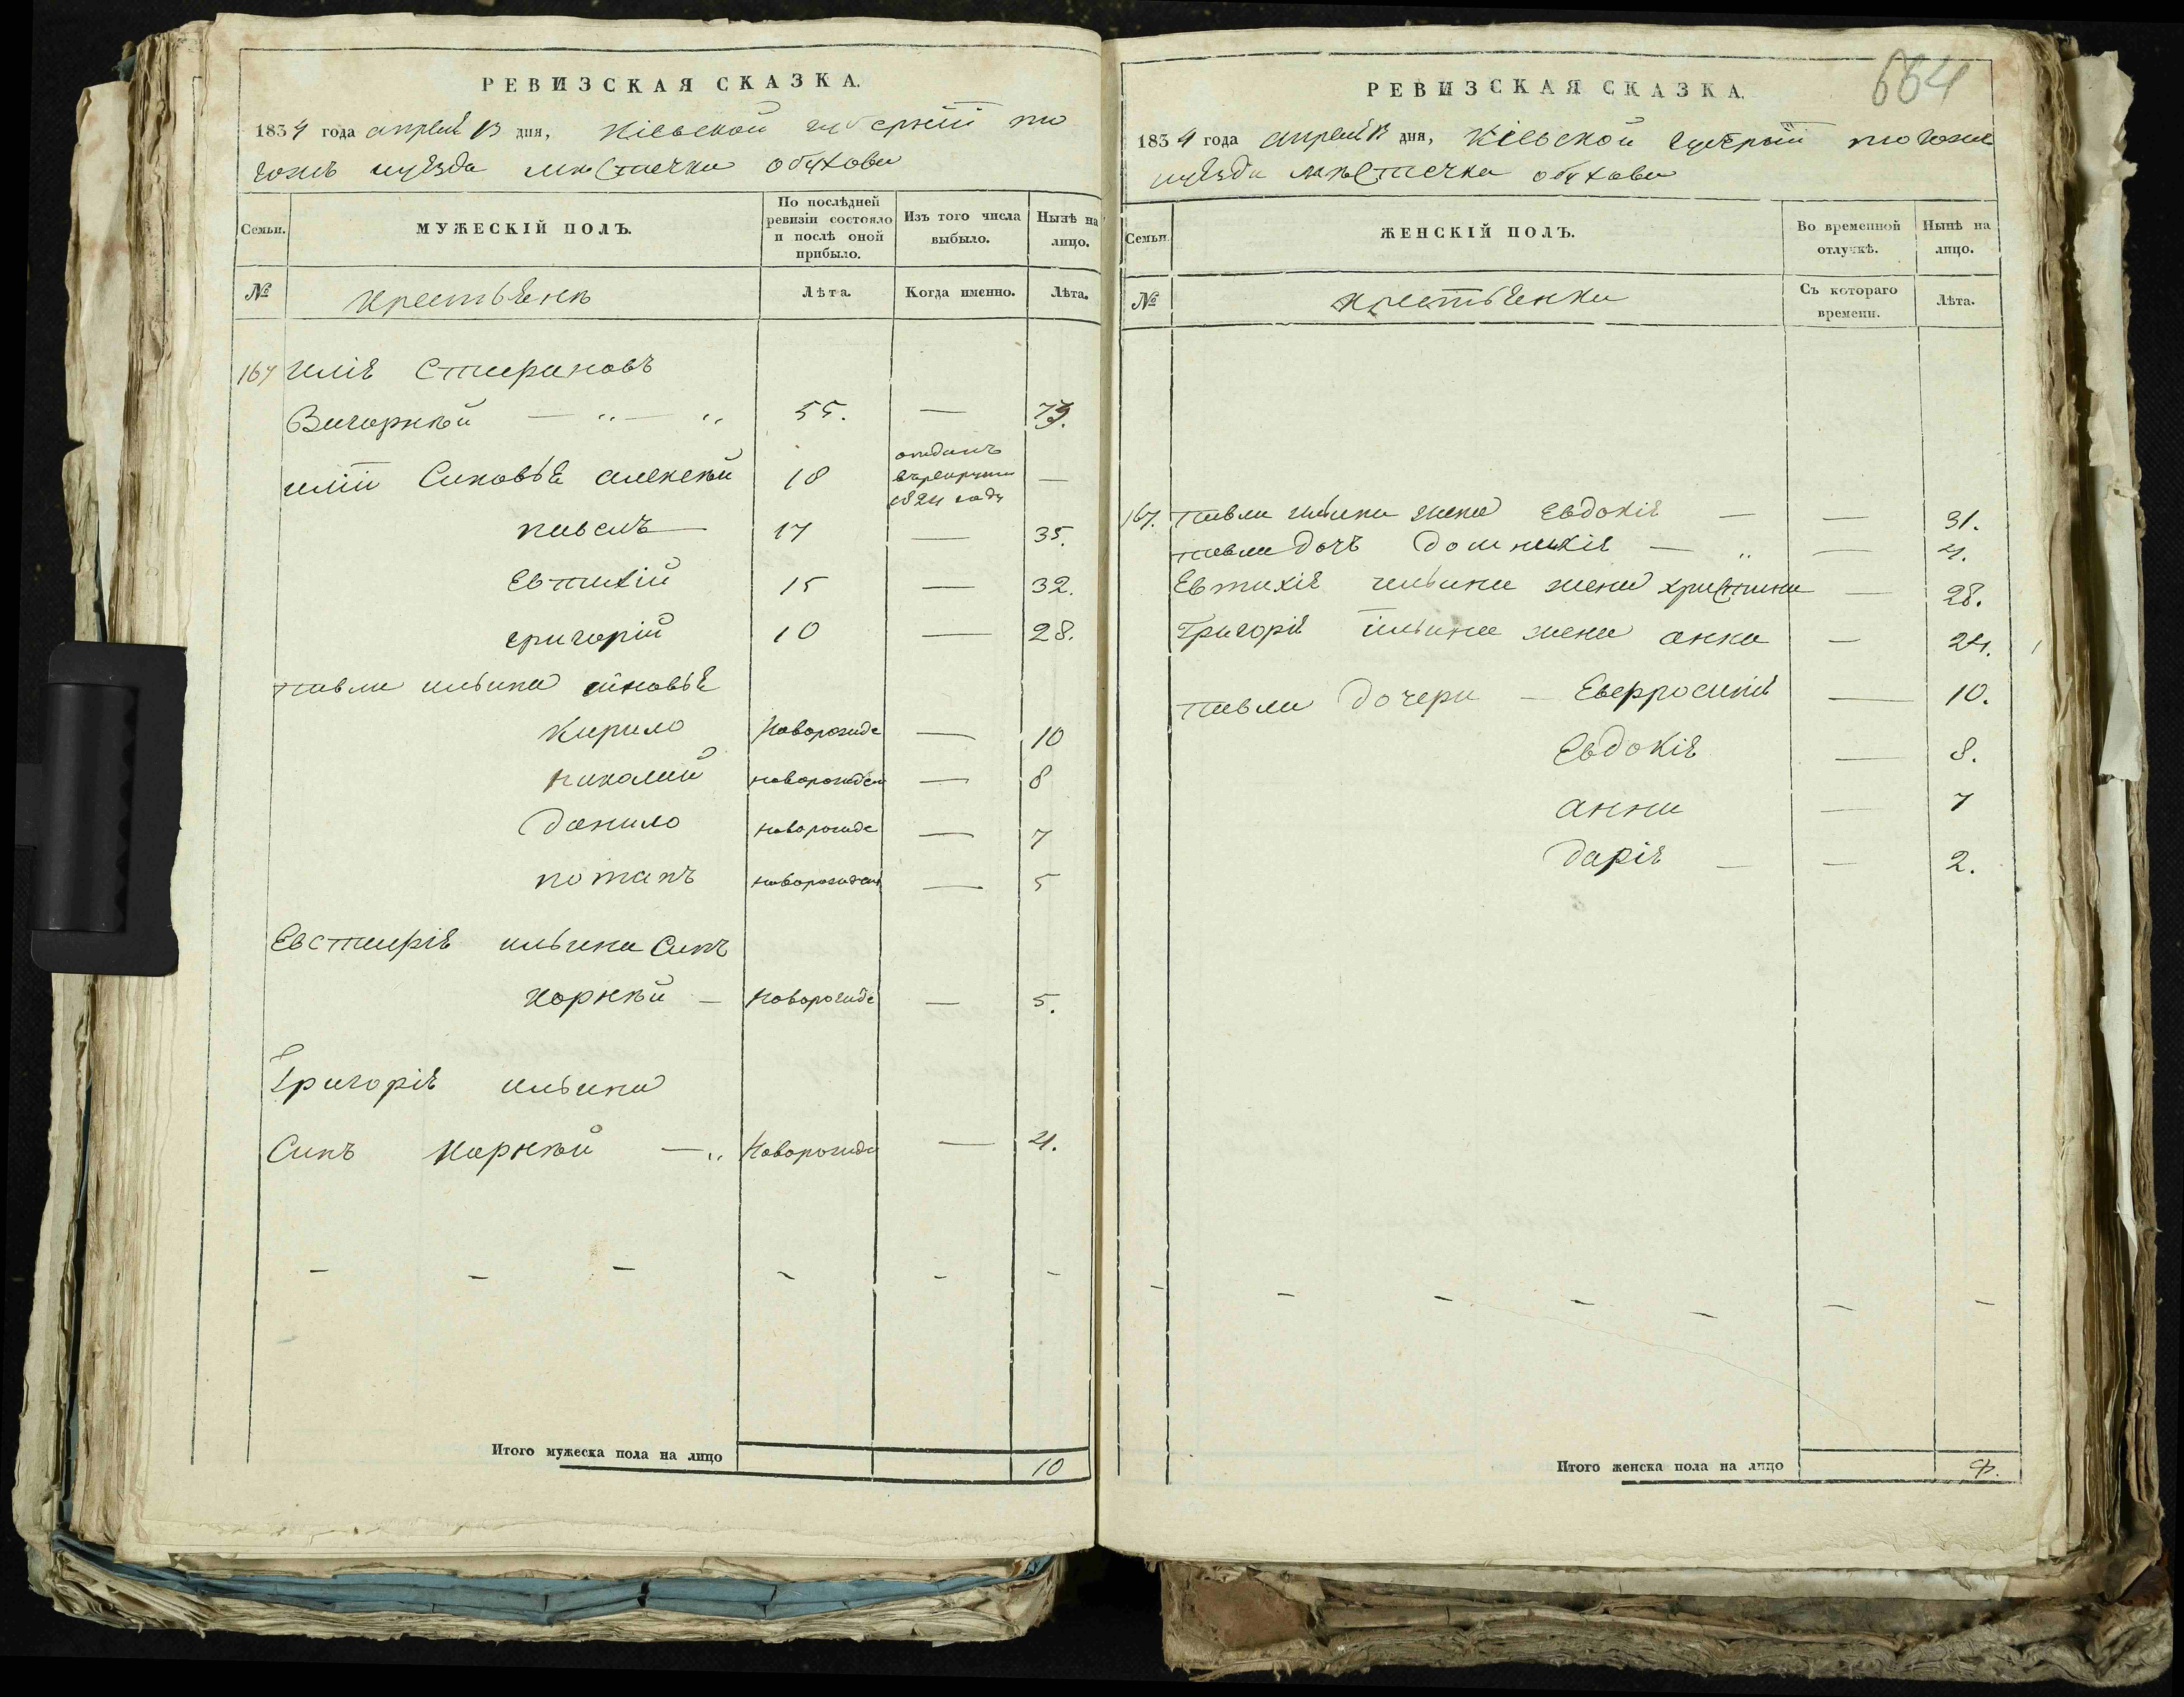 РЕВИЗСКАЯ СКАЗКА.
1834 года апреля 13 дня, Кіевской губерніи то
гожъ уѣзда мѣстечка обухова
Семьи.
МУЖЕСКІЙ ПОЛЪ.
По послѣдней ревизіи состояло и послѣ оной прибыло.
Изъ того числа выбыло.
Нынѣ на лицо.
№
Лѣта.
Когда именно.
Лѣта.
167 Илія Стефановъ
55. —
Иліи Синовья алексѣй 18 отданъ
1824 году —
павелъ 17 — 35.
Евтихій 15 — 32.
григорій 10 — 28.
павла ильина синовья
Кирило новорожде — 10
николай новорожден — 8
данило новорожде — 7
потапъ новорожден — 5
ильина Синъ
Корнѣй — новорожде — 5.
Григорія ильина
Синъ Корнѣй — новорожде — 4.
Итого мужеска пола на лицо 10
664
РЕВИЗСКАЯ СКАЗКА.
1834 года апреля 13 дня, Кіевской губерніи тогоже
уѣзда мѣстечка обухова
Семьи.
ЖЕНСКІЙ ПОЛЪ.
Во временной отлучкѣ.
Нынѣ на лицо.
№
Съ котораго времени.
Лѣта.
167. павла ильина жена Евдокія — — 31.
павла дочъ домникія — — 4.
Евтихія ильина жена христина — 28.
Григорія ильина жена анна — 24.
павла дочери — Евфросинія — 10.
Евдокія — 8.
анна — 7
дарія — — 2.
Итого женска пола на лицо